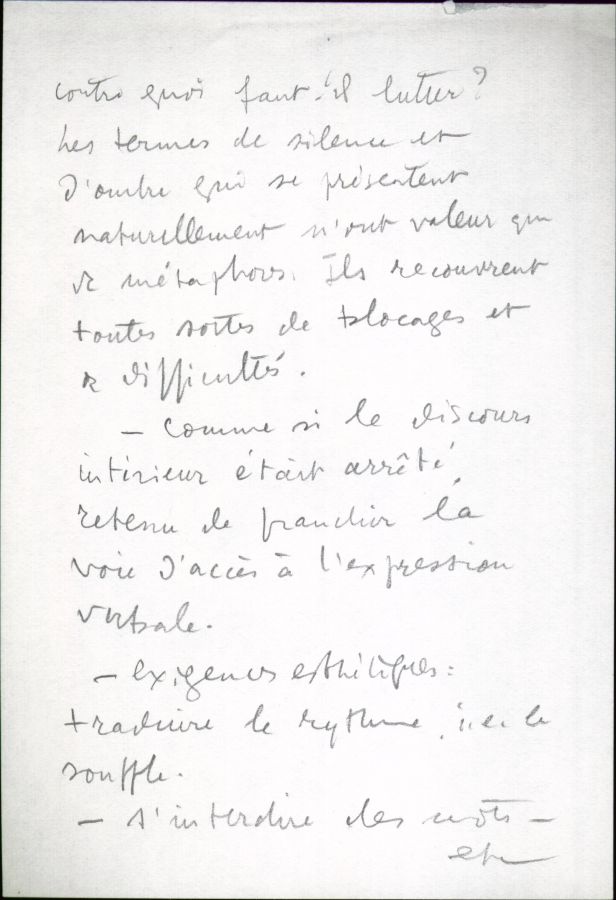 contre quoi faut-il lutter?
Les termes de silence et
d'ombre qui se présentent
naturellement n'ont valeur que
de métaphores. Ils recouvrent
toutes sortes de blocages et
de difficultés.
– Comme si le discours
intérieur était arrêté,
retenu de franchir la
voie d'accès à l'expression
verbale.
– exigences esthétiques:
traduire le rythme, i.e. le
souffle.
– s'interdire des mots –